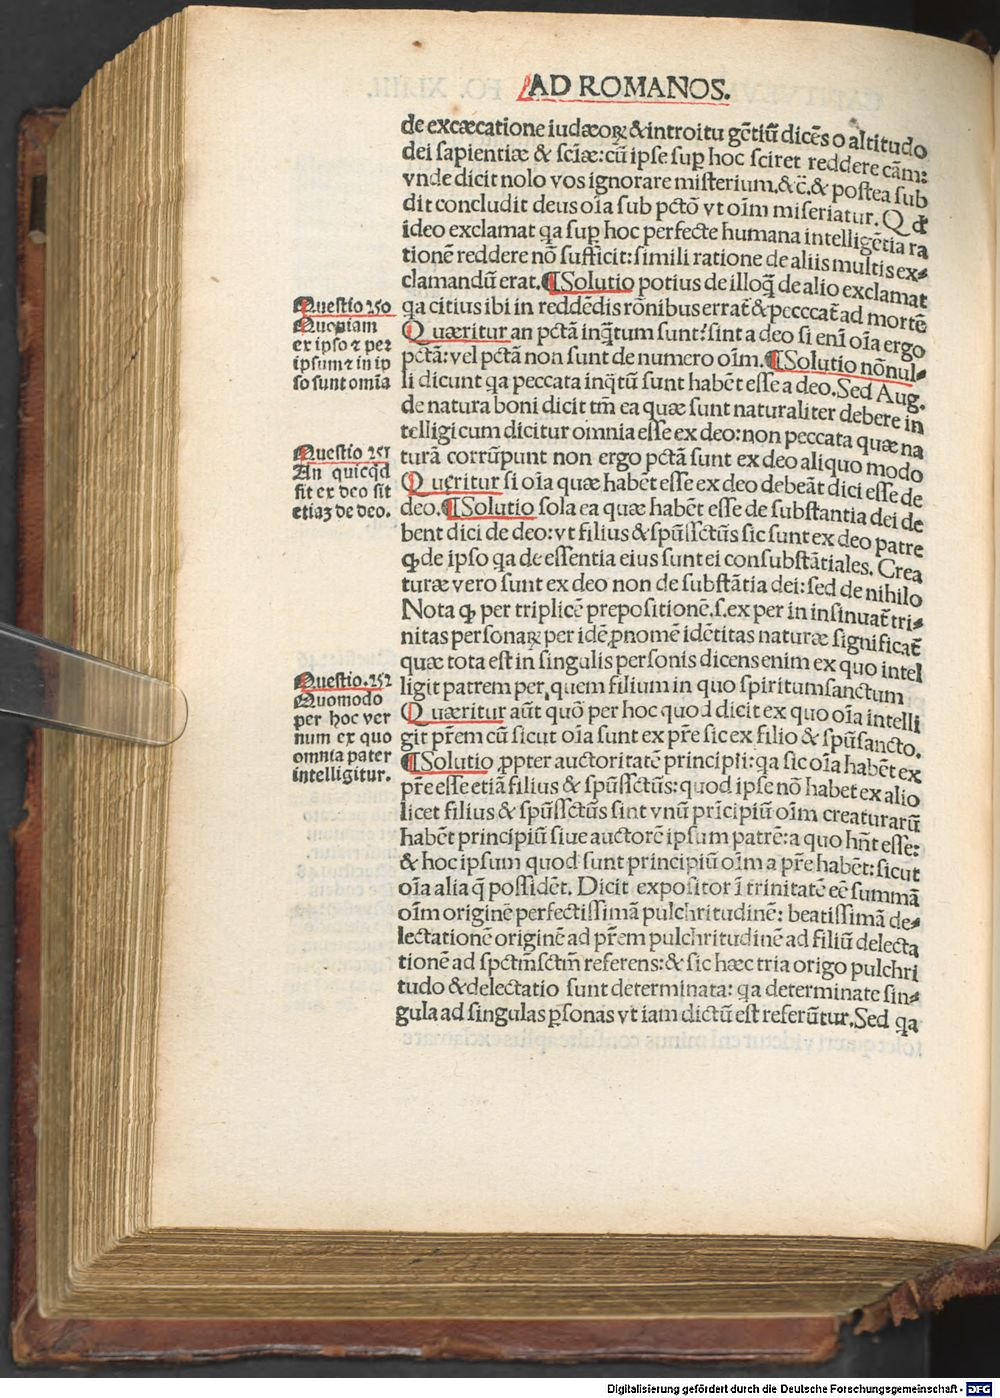 AD ROMANOS.
de excæcatione iudæoꝝ & introitu gētiū dicēs o altitudo
dei sapientiæ & sciæ: cū ipse suꝑ hoc sciret reddere cām:
vnde dicit nolo vos ignorare misterium.&c̄.& postea sub
dit concludit deus oīa sub pctō vt oīm miseriatur. Q d
ideo exclamat qa suꝑ hoc perfecte humana intelligētia ra
tionē reddere nō sufficit: simili ratione de aliis multis ex-
clamandū erat. ¶Solutio potius de illo q̄ de alio exclamat
qa citius ibi in reddēdis rōnibus errat̄ & pecccat̄ ad mortē
Quæritur an pctā inq̄tum sunt: sint a deo si eni oīa ergo
pctā: vel pctā non sunt de numero oīm. ¶Solutio nōnul-
li dicunt qa peccata inq̄tū sunt habēt esse a deo. Sed Aug.
de natura boni dicit tm̄ ea quæ sunt naturaliter debere in
telligi cum dicitur omnia esse ex deo: non peccata quæ na
turā corrūpunt non ergo pctā sunt ex deo aliquo modo
Queritur si oīa quæ habēt esse ex deo debeāt dici esse de
deo. ¶Solutio sola ea quæ habēt esse de substantia dei de
bent dici de deo: vt filius & spūssctūs sic sunt ex deo patre
ꝙ de ipso qa de essentia eius sunt ei consubstātiales. Crea
turæ vero sunt ex deo non de substātia dei: sed de nihilo
Nota ꝙ per triplicē prepositionē.s.ex per in insinuat̄ tri-
nitas personaꝝ per idē ꝓnomē idētitas naturæ significat̄
quæ tota est in singulis personis dicens enim ex quo intel
ligit patrem per quem filium in quo spiritumsanctum
Quæritur aūt quō per hoc quod dicit ex quo oīa intelli
git pr̄em cū sicut oīa sunt ex pr̄e sic ex filio & spūsancto.
¶Solutio ꝓpter auctoritatē principii: qa sic oīa habēt ex
pr̄e esse etiā filius & spūssctūs: quod ipse nō habet ex alio
licet filius & spūssctūs sint vnū prīcipiū oīm creaturarū
habēt principiū siue auctorē ipsum patrē: a quo hn̄t esse:
& hoc ipsum quod sunt principiū oīm a pr̄e habēt: sicut
oīa alia q̄ possidēt. Dicit expositor ī trinitatē eē summā
oīm originē perfectissimā pulchritudinē: beatissimā de-
lectationē originē ad pr̄em pulchritudinē ad filiū delecta
tionē ad spctm̄sctm̄ referens: & sic hæc tria origo pulchri
tudo & delectatio sunt determinata: qa determinate sin-
gula ad singulas ꝑsonas vt iam dictū est referūtur. Sed qa
Questio 250
Quoniam
ex ipso ⁊ per
ipsum ⁊ in ip
so sunt omīa
Questio 251
An quicq̄d
sit ex deo sit
etiaꝫ de deo.
Questio.252
Quomodo
per hoc ver
num ex quo
omnia pater
intelligitur.
Digitalisierung gefördert durch die Deutsche Forschungsgemeinschaft - DFG